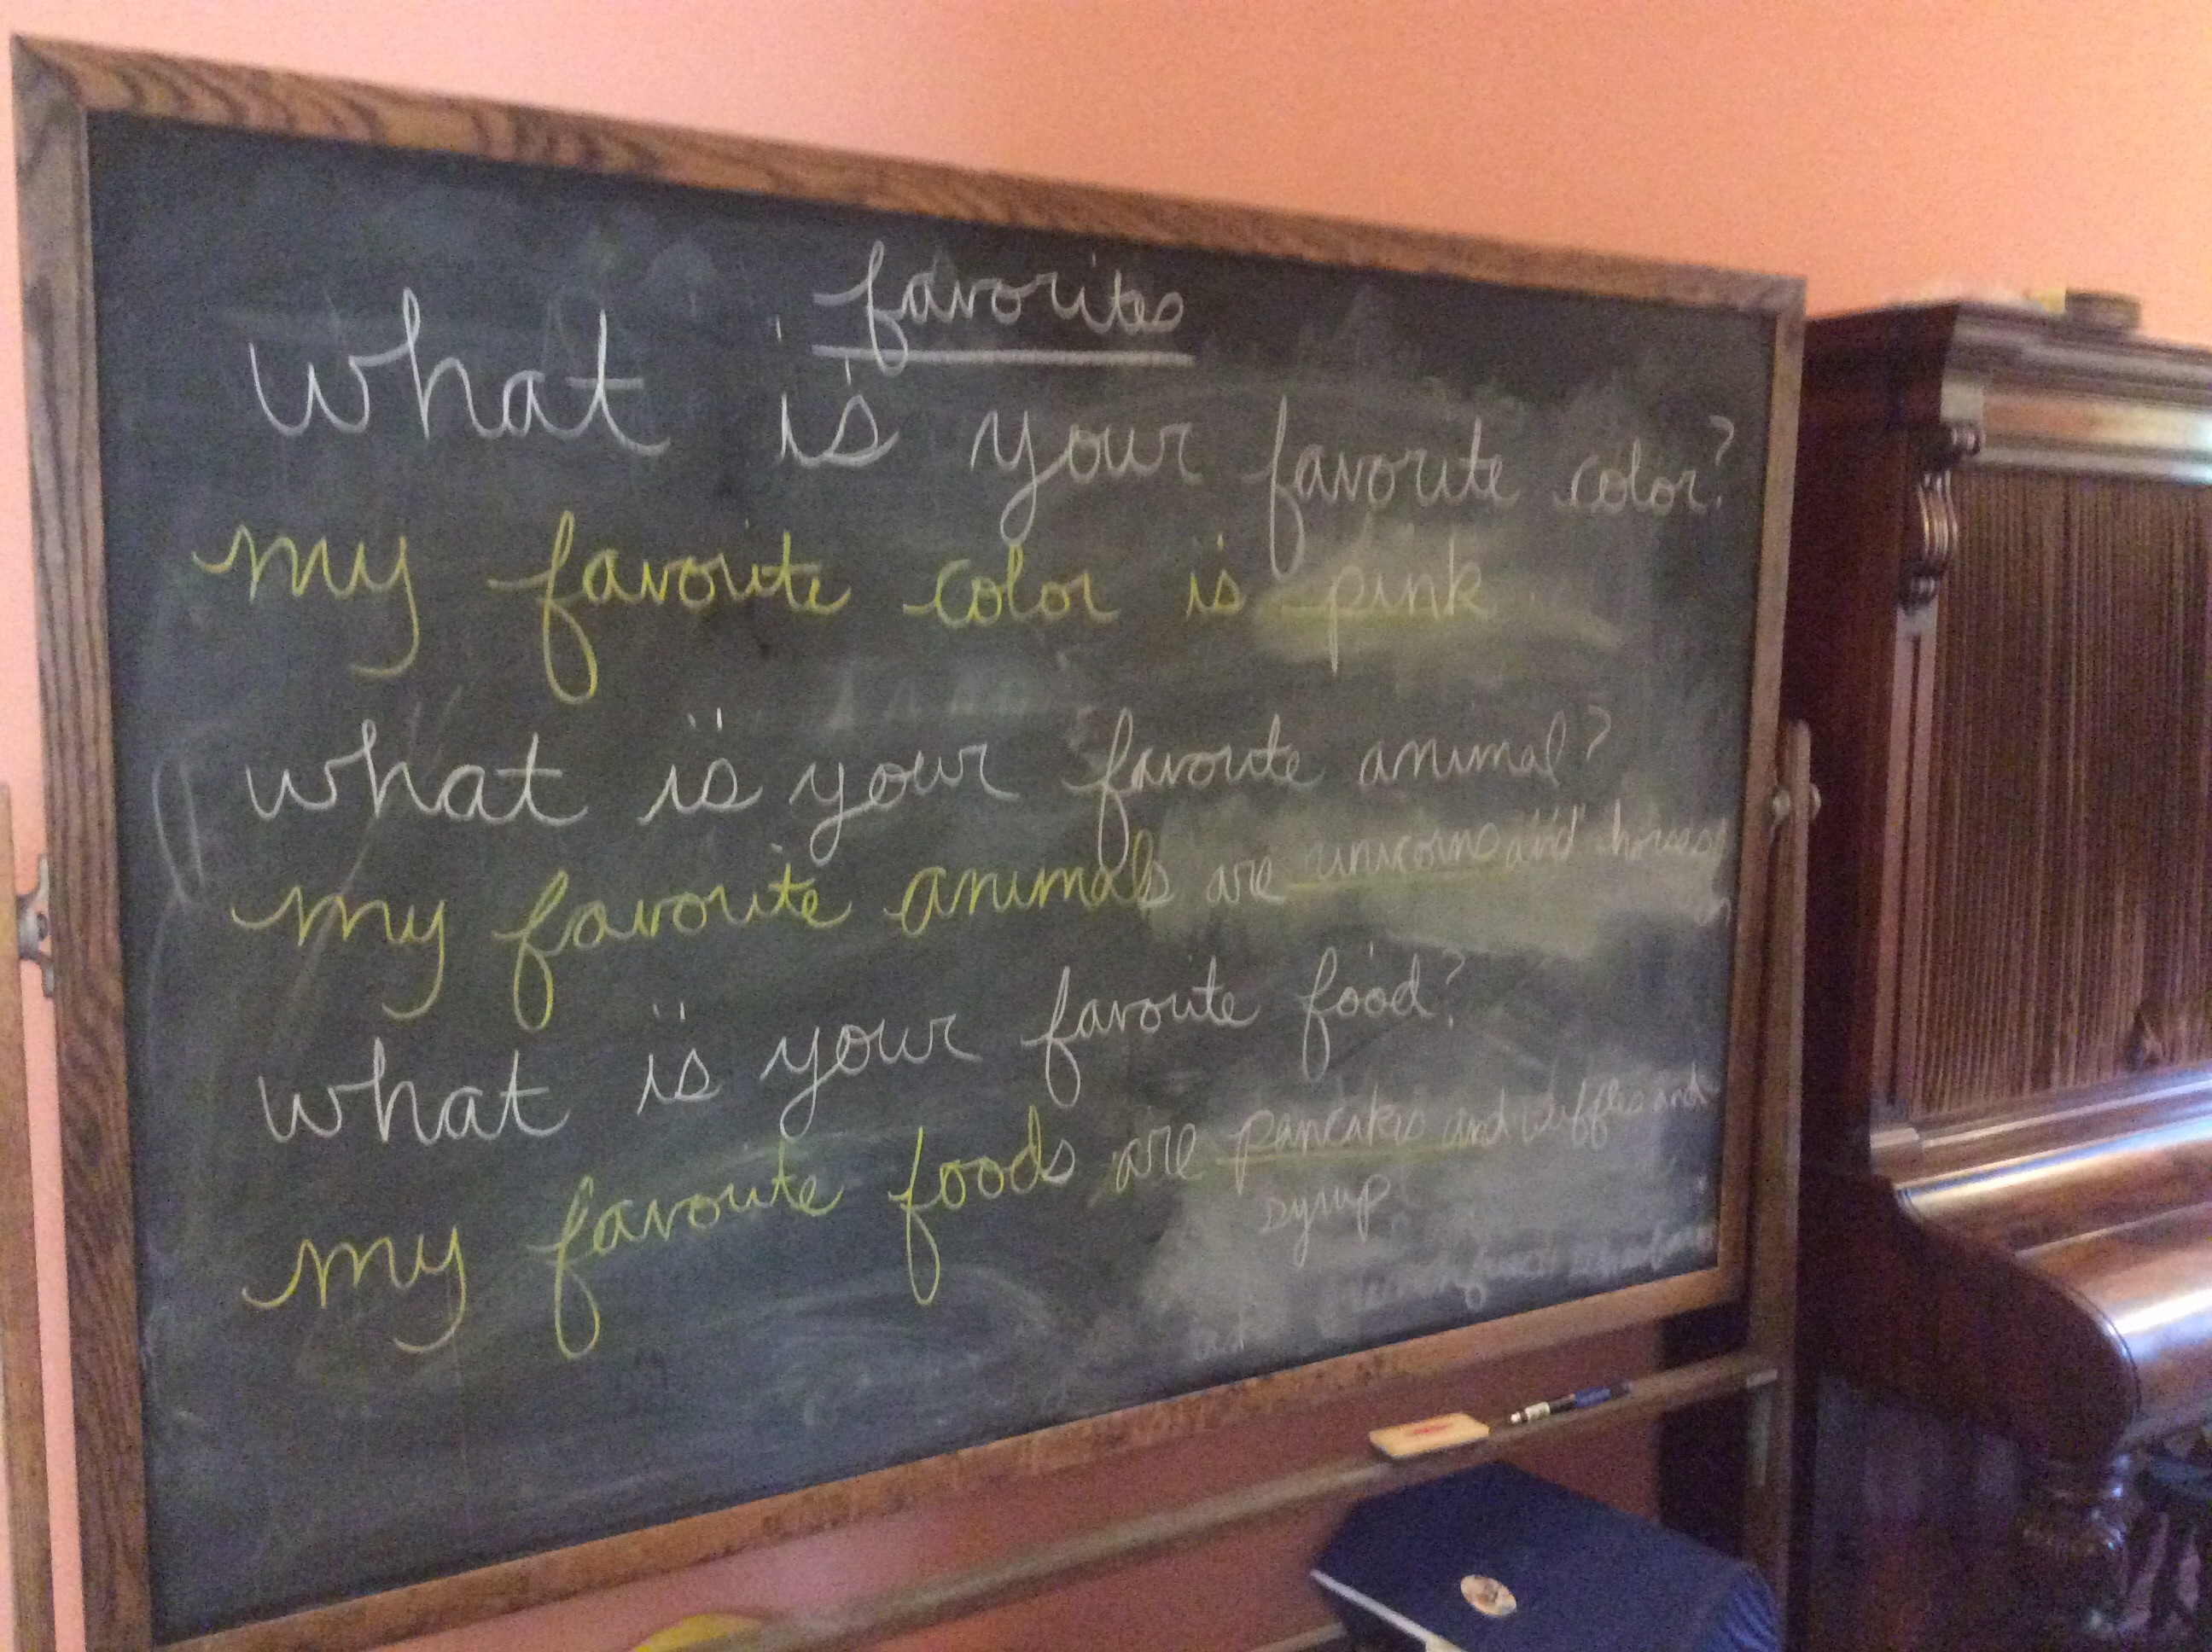 favorites
what is your favorite color?
my favorite color is pink
what is your favorite animal?
my favorite animals are unicorns and horses
what is your favorite food?
my favorite foods are pancakes and and
syrup